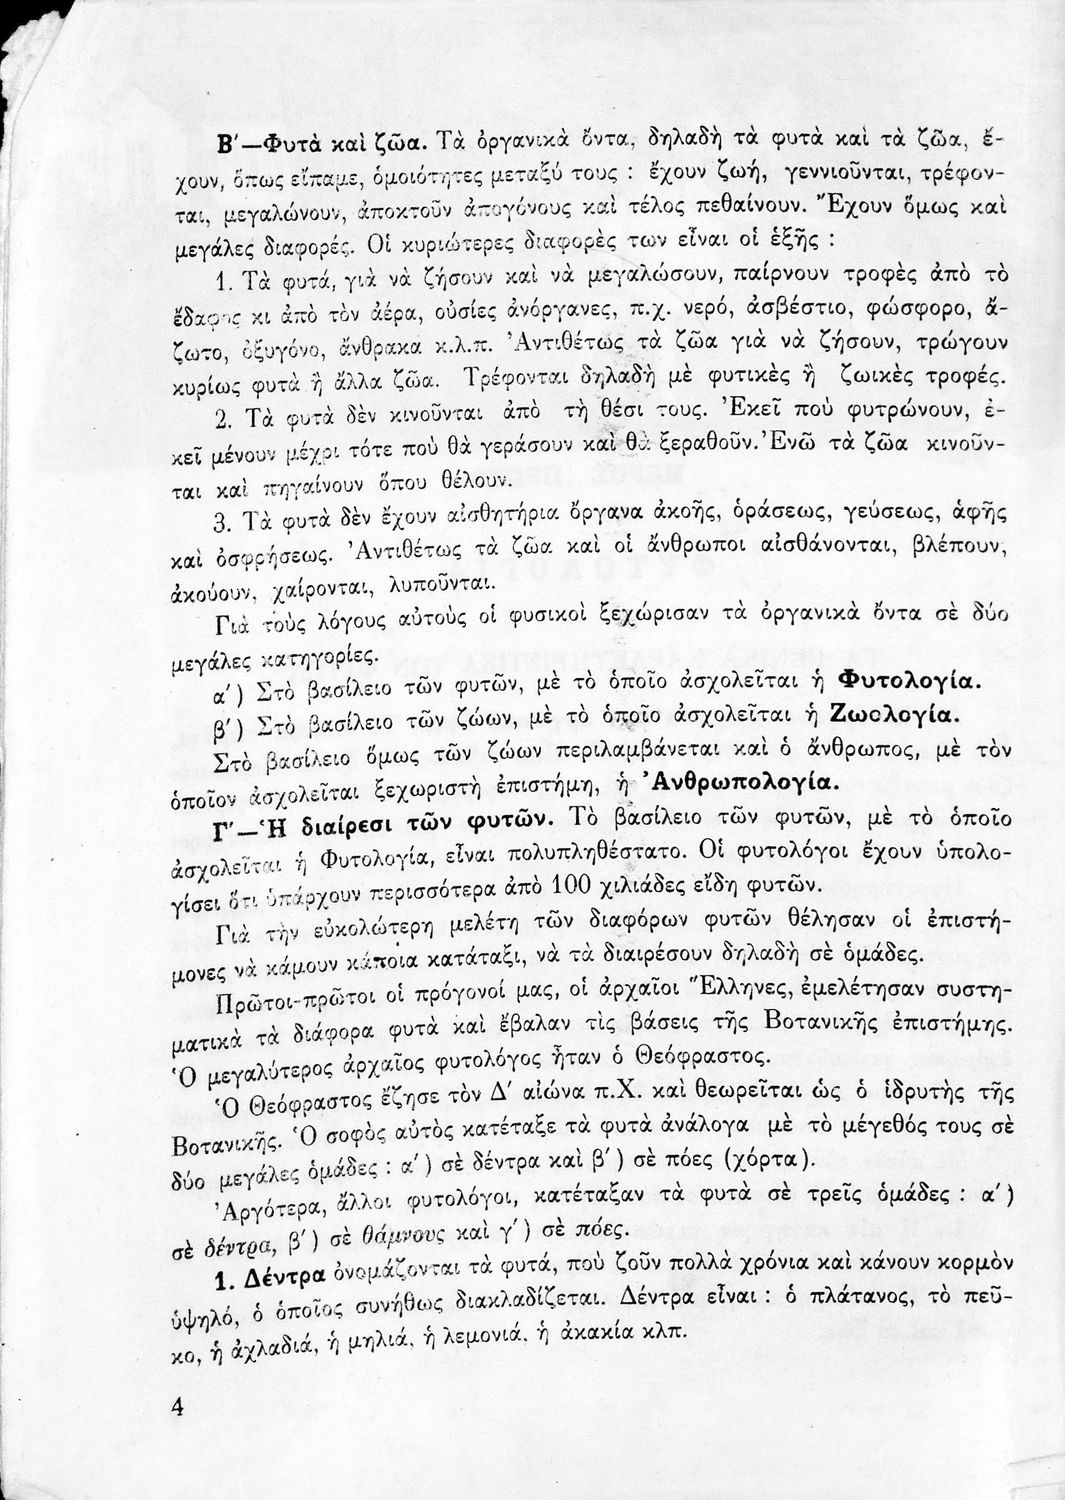 Β′—Φυτὰ καὶ ζῶα. Τὰ ὀργανικὰ ὄντα, δηλαδὴ τὰ φυτὰ καὶ τὰ ζῶα, ἔ-
χουν, ὅπως εἴπαμε, ὁμοιότητες μεταξύ τους : ἔχουν ζωή, γεννιοῦνται, τρέφον-
ται, μεγαλώνουν, ἀποκτοῦν ἀπογόνους καὶ τέλος πεθαίνουν. Ἔχουν ὅμως καὶ
μεγάλες διαφορές. Οἱ κυριώτερες διαφορὲς των εἶναι οἱ ἑξῆς :
1. Τὰ φυτά, γιὰ νὰ ζήσουν καὶ νὰ μεγαλώσουν, παίρνουν τροφὲς ἀπὸ τὸ
ἔδαφος κι ἀπὸ τὸν ἀέρα, οὐσίες ἀνόργανες, π.χ. νερό, ἀσβέστιο, φώσφορο, ἄ-
ζωτο, ὀξυγόνο, ἄνθρακα κ.λ.π. Ἀντιθέτως τὰ ζῶα γιὰ νὰ ζήσουν, τρώγουν
κυρίως φυτὰ ἢ ἄλλα ζῶα. Τρέφονται δηλαδὴ μὲ φυτικὲς ἢ ζωικὲς τροφές.
2. Τὰ φυτὰ δὲν κινοῦνται ἀπὸ τὴ θέσι τους. Ἐκεῖ ποὺ φυτρώνουν, ἐ-
κεῖ μένουν μέχρι τότε ποὺ θὰ γεράσουν καὶ θὰ ξεραθοῦν. Ἐνῶ τὰ ζῶα κινοῦν-
ται καὶ πηγαίνουν ὅπου θέλουν.
3. Τὰ φυτὰ δὲν ἔχουν αἰσθητήρια ὄργανα ἀκοῆς, ὁράσεως, γεύσεως, ἁφῆς
καὶ ὀσφρήσεως. Ἀντιθέτως τὰ ζῶα καὶ οἱ ἄνθρωποι αἰσθάνονται, βλέπουν,
ἀκούουν, χαίρονται, λυποῦνται.
Γιὰ τοὺς λόγους αὐτοὺς οἱ φυσικοὶ ξεχώρισαν τὰ ὀργανικὰ ὄντα σὲ δύο
μεγάλες κατηγορίες.
α′) Στὸ βασίλειο τῶν φυτῶν, μὲ τὸ ὁποῖο ἀσχολεῖται ἡ Φυτολογία.
β′) Στὸ βασίλειο τῶν ζώων, μὲ τὸ ὁποῖο ἀσχολεῖται ἡ Ζωολογία.
Στὸ βασίλειο ὅμως τῶν ζώων περιλαμβάνεται καὶ ὁ ἄνθρωπος, μὲ τὸν
ὁποῖον ἀσχολεῖται ξεχωριστὴ ἐπιστήμη, ἡ Ἀνθρωπολογία.
Γ′—Ἡ διαίρεσι τῶν φυτῶν. Τὸ βασίλειο τῶν φυτῶν, μὲ τὸ ὁποῖο
ἀσχολεῖται ἡ Φυτολογία, εἶναι πολυπληθέστατο. Οἱ φυτολόγοι ἔχουν ὑπολο-
γίσει ὅτι ὑπάρχουν περισσότερα ἀπὸ 100 χιλιάδες εἴδη φυτῶν.
Γιὰ τὴν εὐκολώτερη μελέτη τῶν διαφόρων φυτῶν θέλησαν οἱ ἐπιστή-
μονες νὰ κάμουν κάποια κατάταξι, νὰ τὰ διαιρέσουν δηλαδὴ σὲ ὁμάδες.
Πρῶτοι-πρῶτοι οἱ πρόγονοί μας, οἱ ἀρχαῖοι Ἕλληνες, ἐμελέτησαν συστη-
ματικὰ τὰ διάφορα φυτὰ καὶ ἔβαλαν τὶς βάσεις τῆς Βοτανικῆς ἐπιστήμης.
Ὁ μεγαλύτερος ἀρχαῖος φυτολόγος ἦταν ὁ Θεόφραστος.
Ὁ Θεόφραστος ἔζησε τὸν Δ′ αἰώνα π.Χ. καὶ θεωρεῖται ὡς ὁ ἱδρυτὴς τῆς
Βοτανικῆς. Ὁ σοφὸς αὐτὸς κατέταξε τὰ φυτὰ ἀνάλογα μὲ τὸ μέγεθός τους σὲ
δύο μεγάλες ὁμάδες : α′) σὲ δέντρα καὶ β′) σὲ πόες (χόρτα).
Ἀργότερα, ἄλλοι φυτολόγοι, κατέταξαν τὰ φυτὰ σὲ τρεῖς ὁμάδες : α′)
σὲ δέντρα, β′) σὲ θάμνους καὶ γ′) σὲ πόες.
1. Δέντρα ὀνομάζονται τὰ φυτά, ποὺ ζοῦν πολλὰ χρόνια καὶ κάνουν κορμὸν
ὑψηλό, ὁ ὁποῖος συνήθως διακλαδίζεται. Δέντρα εἶναι : ὁ πλάτανος, τὸ πεῦ-
κο, ἡ ἀχλαδιά, ἡ μηλιά, ἡ λεμονιά, ἡ ἀκακία κλπ.
4